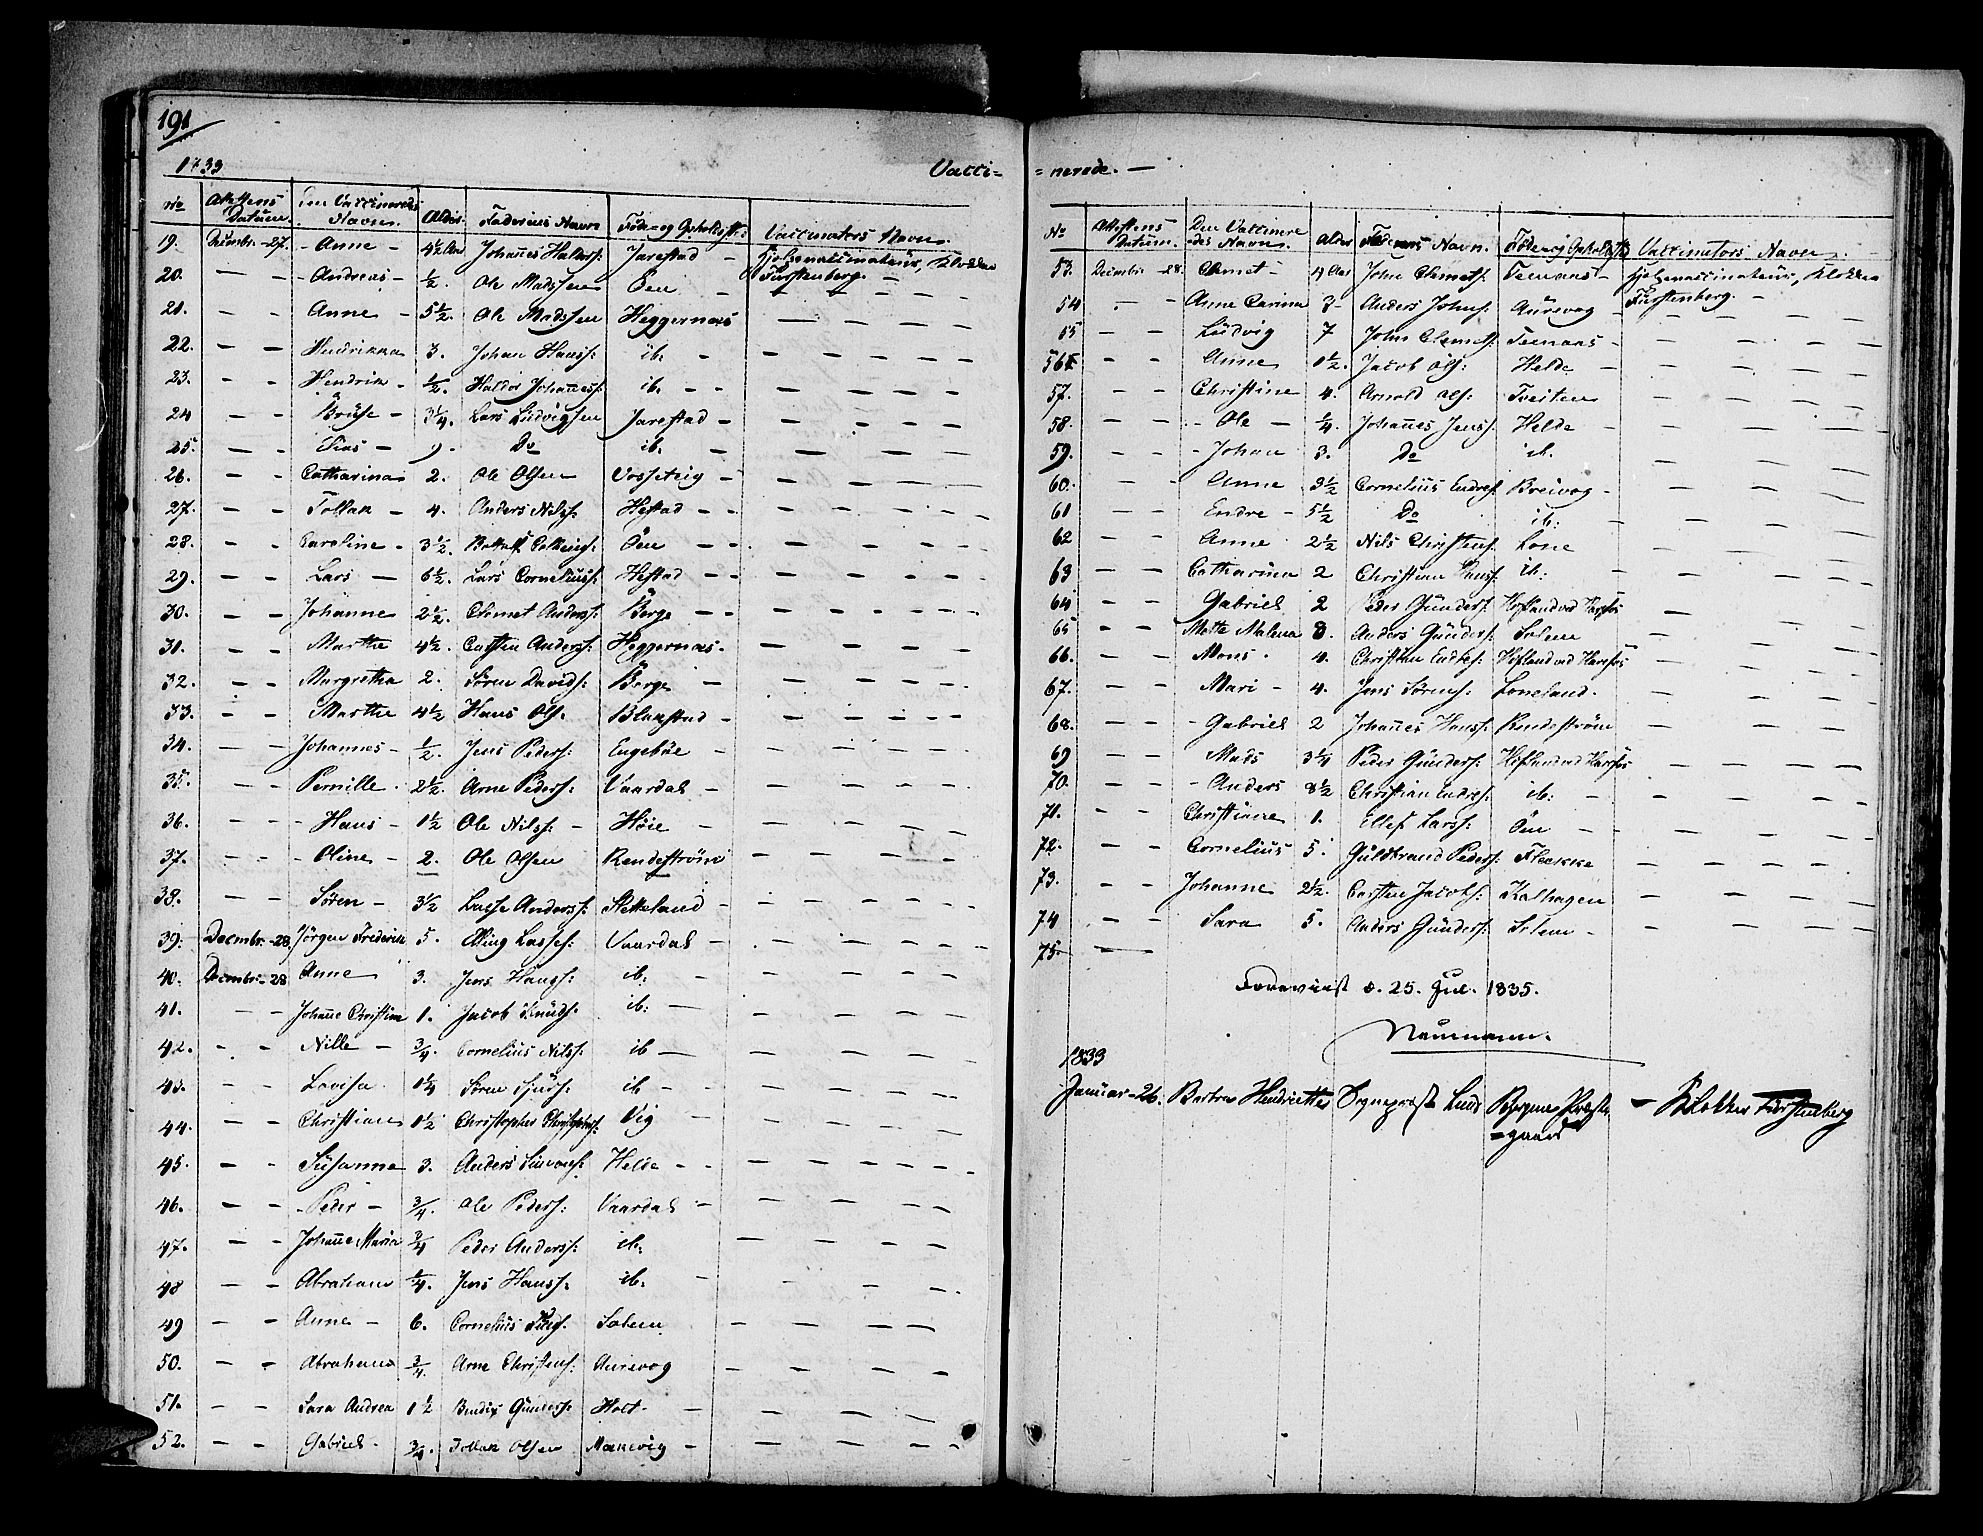 191
1833 Vacci-
No Attestens Datum. Den Vaccineredes Navn. Alder. Faderens Navn Føde- og Opholdsst: Vaccinators Navn.
19. Decembr. - 27. - Anne - 4½ Aar Johannes Haldors: Jarestad - Hjelpevaccinateur, Klokker
20. — - - Andreas - ½. Ole Madssen Öen - Fürstenberg. -
21. - - Anne - 5½. Ole Madssen Heggernæs — — — —
22. — - Hendrikka 3. Johan Hanss: ib. - - — — — —
23. - - Hendrik - ½. Haldor Johaness: ib. - - — — — —
24 - - Brüse - 3¼. Lars Ludvigsen Jarestad - — - — —
25. — - Elias - 9. Do ib. - — — — —
26. — - Catharina 2. Ole Olsen Vosseteig - — — — —
27. — - Tollak - 4. Anders Nilss: Hestad - - — — — —
28. - - Caroline - 3½. Öen - - - — — — —
29. — - Lars — 6½. Lars Corneliuss: Hestad - - — — — —
30. — - Johanne 2½. Clemet Anderss: Berge - - — — — —
31. - - Marthe 4½. Carsten Anderss: Heggernæs. — — — —
32. - - Margretha 2. Sören Davids: Berge - — — — —
33. - - Marthe 4½ Hans Ols: Blaastad - — — — —
34. — - Johannes - ½. Jens Peders: Engebøe - — — — —
35. - - Pernille. 2½. Arne Peders: Vaardal - — — — —
36. - - - Hans - 1½ Ole Nilss: - Höie - — — — —
37. - - - Oline - 2. Ole Olsen Rendeström — — — —
38. — - Sören - 3½ Lasse Anderss: Stekeland - — — — —
39. Decmbr. - 28. Jörgen Frederik 5. Elling Lasses: Vaardal - — — — —
40. Decmbr. - 28 Anne 3. Jens Hanss: ib: — — — —
41. - - Johanne Christine 1. Jacob Knuds: ib: — — — — —
42. - - Nille - ¾. Cornelius Nilss: ib — — — — —
43. - - Lovisa. 1¼ Sören Sjurs: ib - — — — —
44. - - Christian 1½ Christopher Christophers: Vig — — — —
45. - - Süsanne 3. Anders Simons: Helle - - — — — —
46. — - - Peder - ¾. Ole Peders: Vaardal - — — — —
47. — - Johanne Maria ¾ Peder Anderss: ib. — — — —
48 - - Abraham ¼. Jens Hanss: ib: - — — — —
49 - - Anne - 6. Cornelius Solem — — — —
50. - - Abraham ¾. Arne Christens: Aurevog - — — —
51. - - Sara Andrea 1½ Bendix Gunders: Holt - - — — — —
52. - - Gabriel. ¾. Tollak Olsen - — — — —
= nerede. —
No Attestens Datum. Den Vaccinere des Navn. Alder Faderens Navn. Føde- og Opholdsst: Vaccinators Navn.
53. Decembr - 28. Clemet - 9 Aar John Clemets: Teenæs - Hjelpevaccinateur, Klokker
54 . - - Anne Carina 3 - Anders Johns: Aurevog - Fürstenberg. -
55 - - Ludvig 7 John Clemets: Teenæs - — — — —
56 - - Anne 1½. Jacob Ols: Helde - — — — —
57. - - Christine 4. Arnold Ols: Tveiten — — — —
58. - - - Ole — ¼. Johannes Jenss: Helde - — — — —
59. - - - Johan 3. Do ib. — — — —
60. - - Anne 3½ Cornelius Endres: Breivog - — — — —
61 - - Endre - 5½ Do ib: - — — — —
62 - - Anne 2½ Nils Christens: Lone — — — —
63 - - Catharina 2 Christian Hanss: ib: - — — — —
64 - - Gabriel 2 Peder Gunders: Höfland ved Harefos — — — —
65 - - Mette Malena 8. Anders Gunders: Solem — — — —
66. - - Mons. 4. Christian Endres: Höfland ved Harefos — — — —
67. - - Mari - 4. Jens Sörens: Loneland. — — — —
68. - - - Gabriel 2 Johannes Hanss: Rendeström — — — —
69 - - Mads 3¼ Peder Gunders: Höfland ved Harefos — — — —
70. - - - Anders 8½ Christian Endres: ib: - — — — —
71. - - Christiane 1. Ellef Larss: Öen - — — — —
72. - - Cornelius 5. Guldbrand Peders: Flekke — — — —
73. - - Johanne 2½. Carsten Jacobs: Kalhagen — — — —
74 - - Sara 5. Anders Gunders: Solem - — — — —
75. —
Foreviist d. 25. Jul. 1835.
Neumann.
1833
Januar - 26. Henriette Sognepræst Lund Præste - Klokker Fürstenberg
= gaard